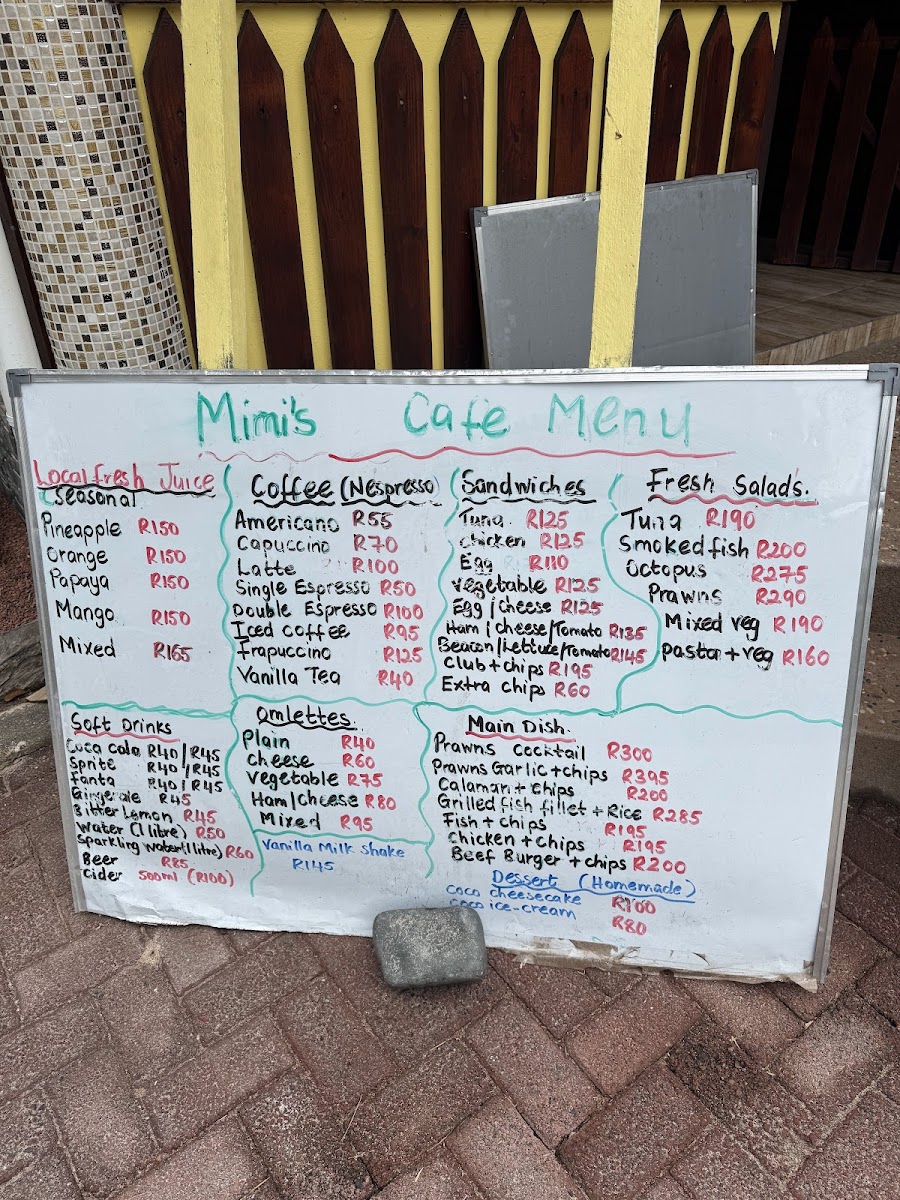 Mimi's Cafe Menu
Local fresh Juice
Seasonal
Pineapple R150
Orange R150
Papaya R150
Mango R150
Mixed R165
Coffee (Nespresso)
Americano R55
Capuccino R70
Latte R100
Single Espresso R50
Double Espresso R100
Iced coffee R95
frapuccino R125
Vanilla Tea R40
Sandwiches
Tuna R125
chicken R125
Egg R110
vegetable R125
Egg/cheese R125
Ham/cheese/Tomato R135
Beacon/Lettuce/Tomato R145
Club + chips R195
Extra chips R60
Fresh Salad's.
Tuna R190
Smoked fish R200
Octopus R275
Prawns R290
Mixed veg R190
pasta + veg R160
Soft Drinks
Coca cola R40/R45
Sprite R40/R45
Fanta R40/R45
Gingerale R45
Bitter Lemon R45
Water (1 litre) R50
Sparkling water (1 litre) R60
Beer R85
cider 500ml (R100)
Omlettes.
Plain R40
cheese R60
vegetable R75
Ham/cheese R80
Mixed R95
Vanilla Milk Shake
R145
Main Dish.
Prawns Cocktail R300
Prawns Garlic + chips R395
Calamari + chips R200
Grilled fish fillet + Rice R285
Fish + chips R195
Chicken + chips R195
Beef Burger + chips R200
Dessert (Homemade)
coco cheesecake R100
coco ice-cream R80